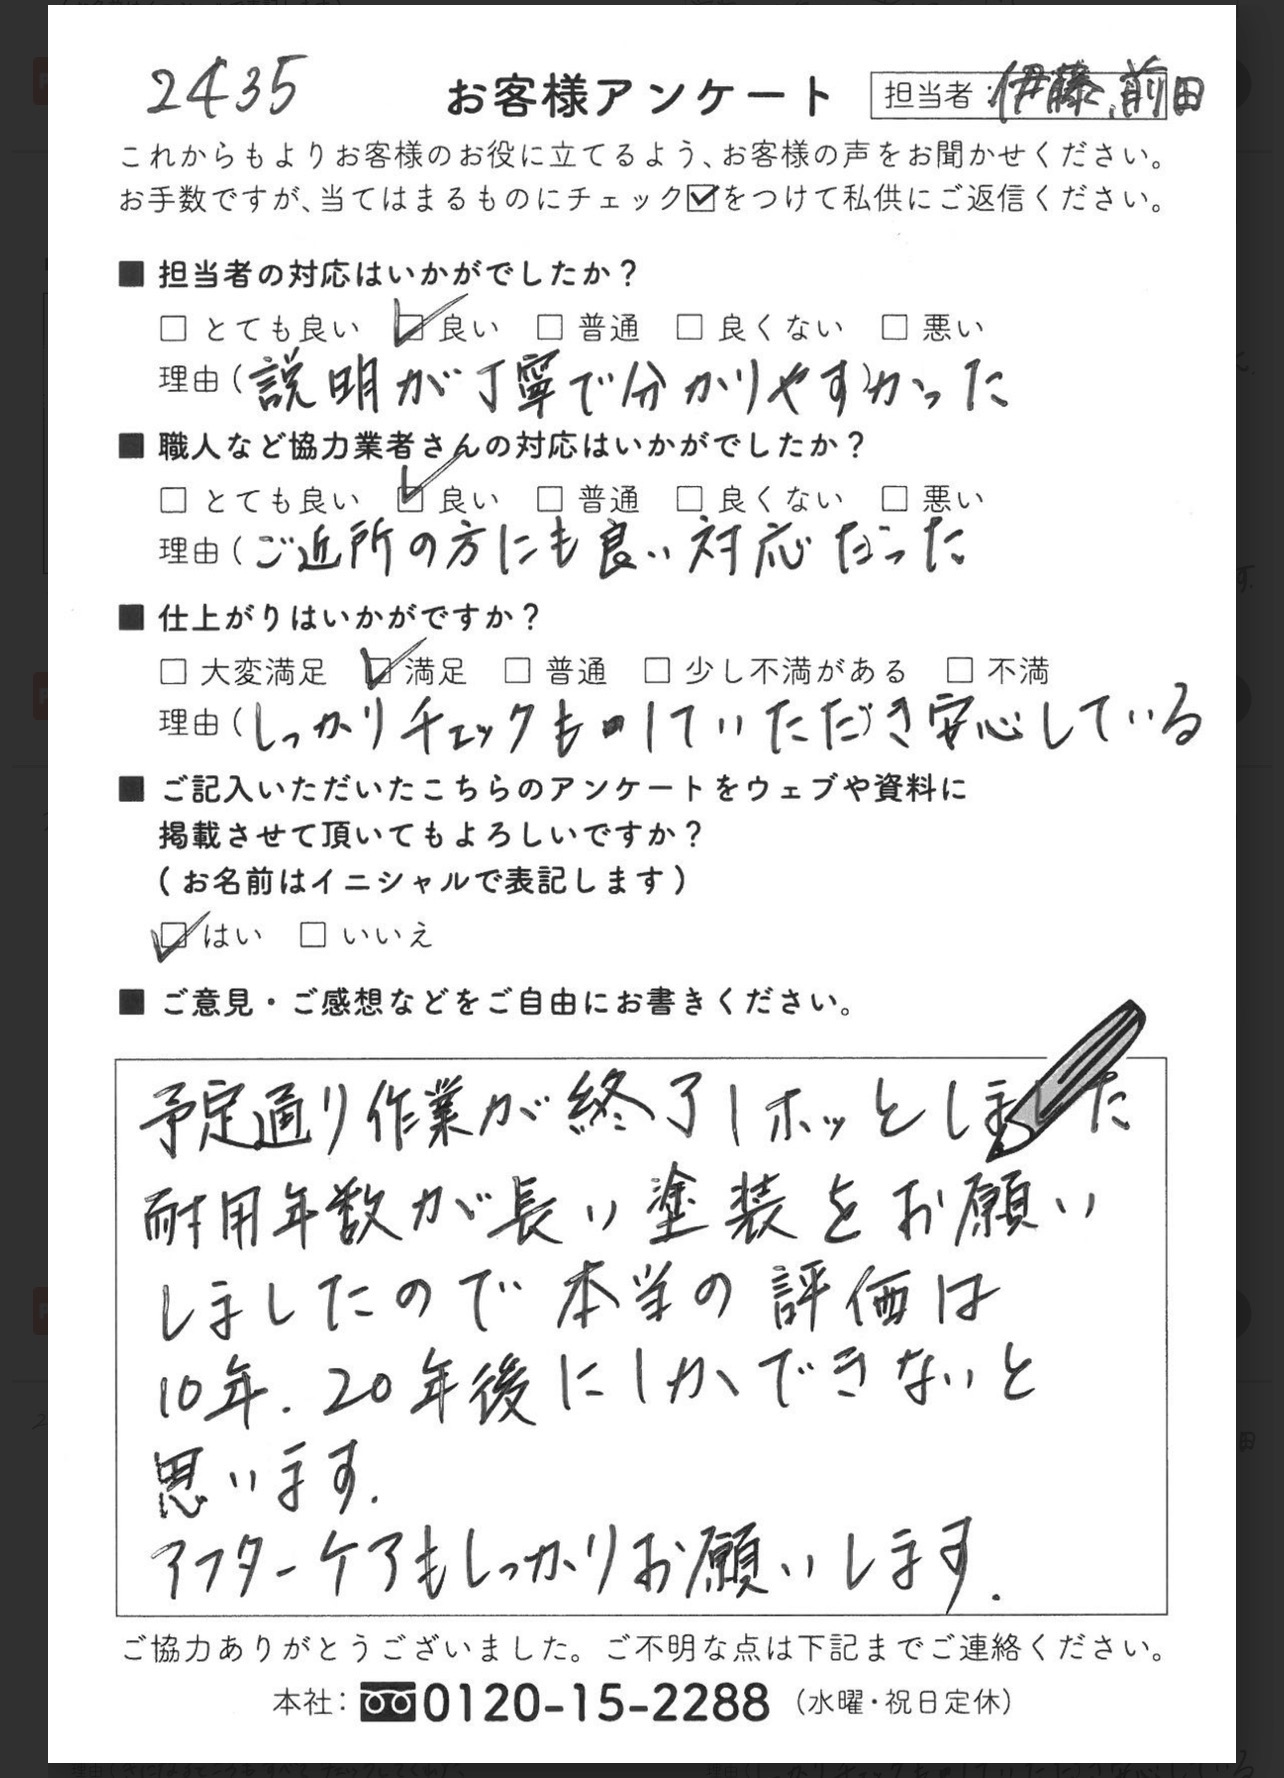 2435
お客様アンケート
担当者：伊藤、前田
これからもよりお客様のお役に立てるよう、お客様の声をお聞かせください。
お手数ですが、当てはまるものにチェック☑をつけて私供にご返信ください。
■ 担当者の対応はいかがでしたか？
□ とても良い ☑ 良い □ 普通 □ 良くない □ 悪い
理由（説明が丁寧で分かりやすかった
■ 職人など協力業者さんの対応はいかがでしたか？
□ とても良い ☑ 良い □ 普通 □ 良くない □ 悪い
理由（ご近所の方にも良い対応だった
■ 仕上がりはいかがですか？
□ 大変満足 ☑ 満足 □ 普通 □ 少し不満がある □ 不満
理由（しっかりチェックもしていただき安心している
■ ご記入いただいたこちらのアンケートをウェブや資料に
掲載させて頂いてもよろしいですか？
(お名前はイニシャルで表記します)
☑ はい □ いいえ
■ ご意見・ご感想などをご自由にお書きください。
予定通り作業が終了しホッとしました
耐用年数が長い塗装をお願い
しましたので本当の評価は
10年.20年後にしかできないと
思います.
アフターケアもしっかりお願いします.
ご協力ありがとうございました。ご不明な点は下記までご連絡ください。
本社：0120-15-2288（水曜・祝日定休）